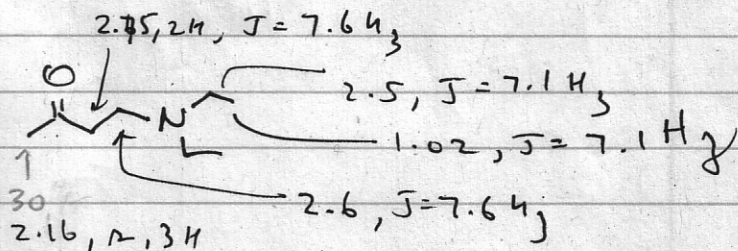 2.75, 2H, J = 7.6 Hz
O
2.5, J = 7.1 Hz
N
1.02, J = 7.1 Hz
30
2.6, J = 7.6 Hz
2.16, s, 3H